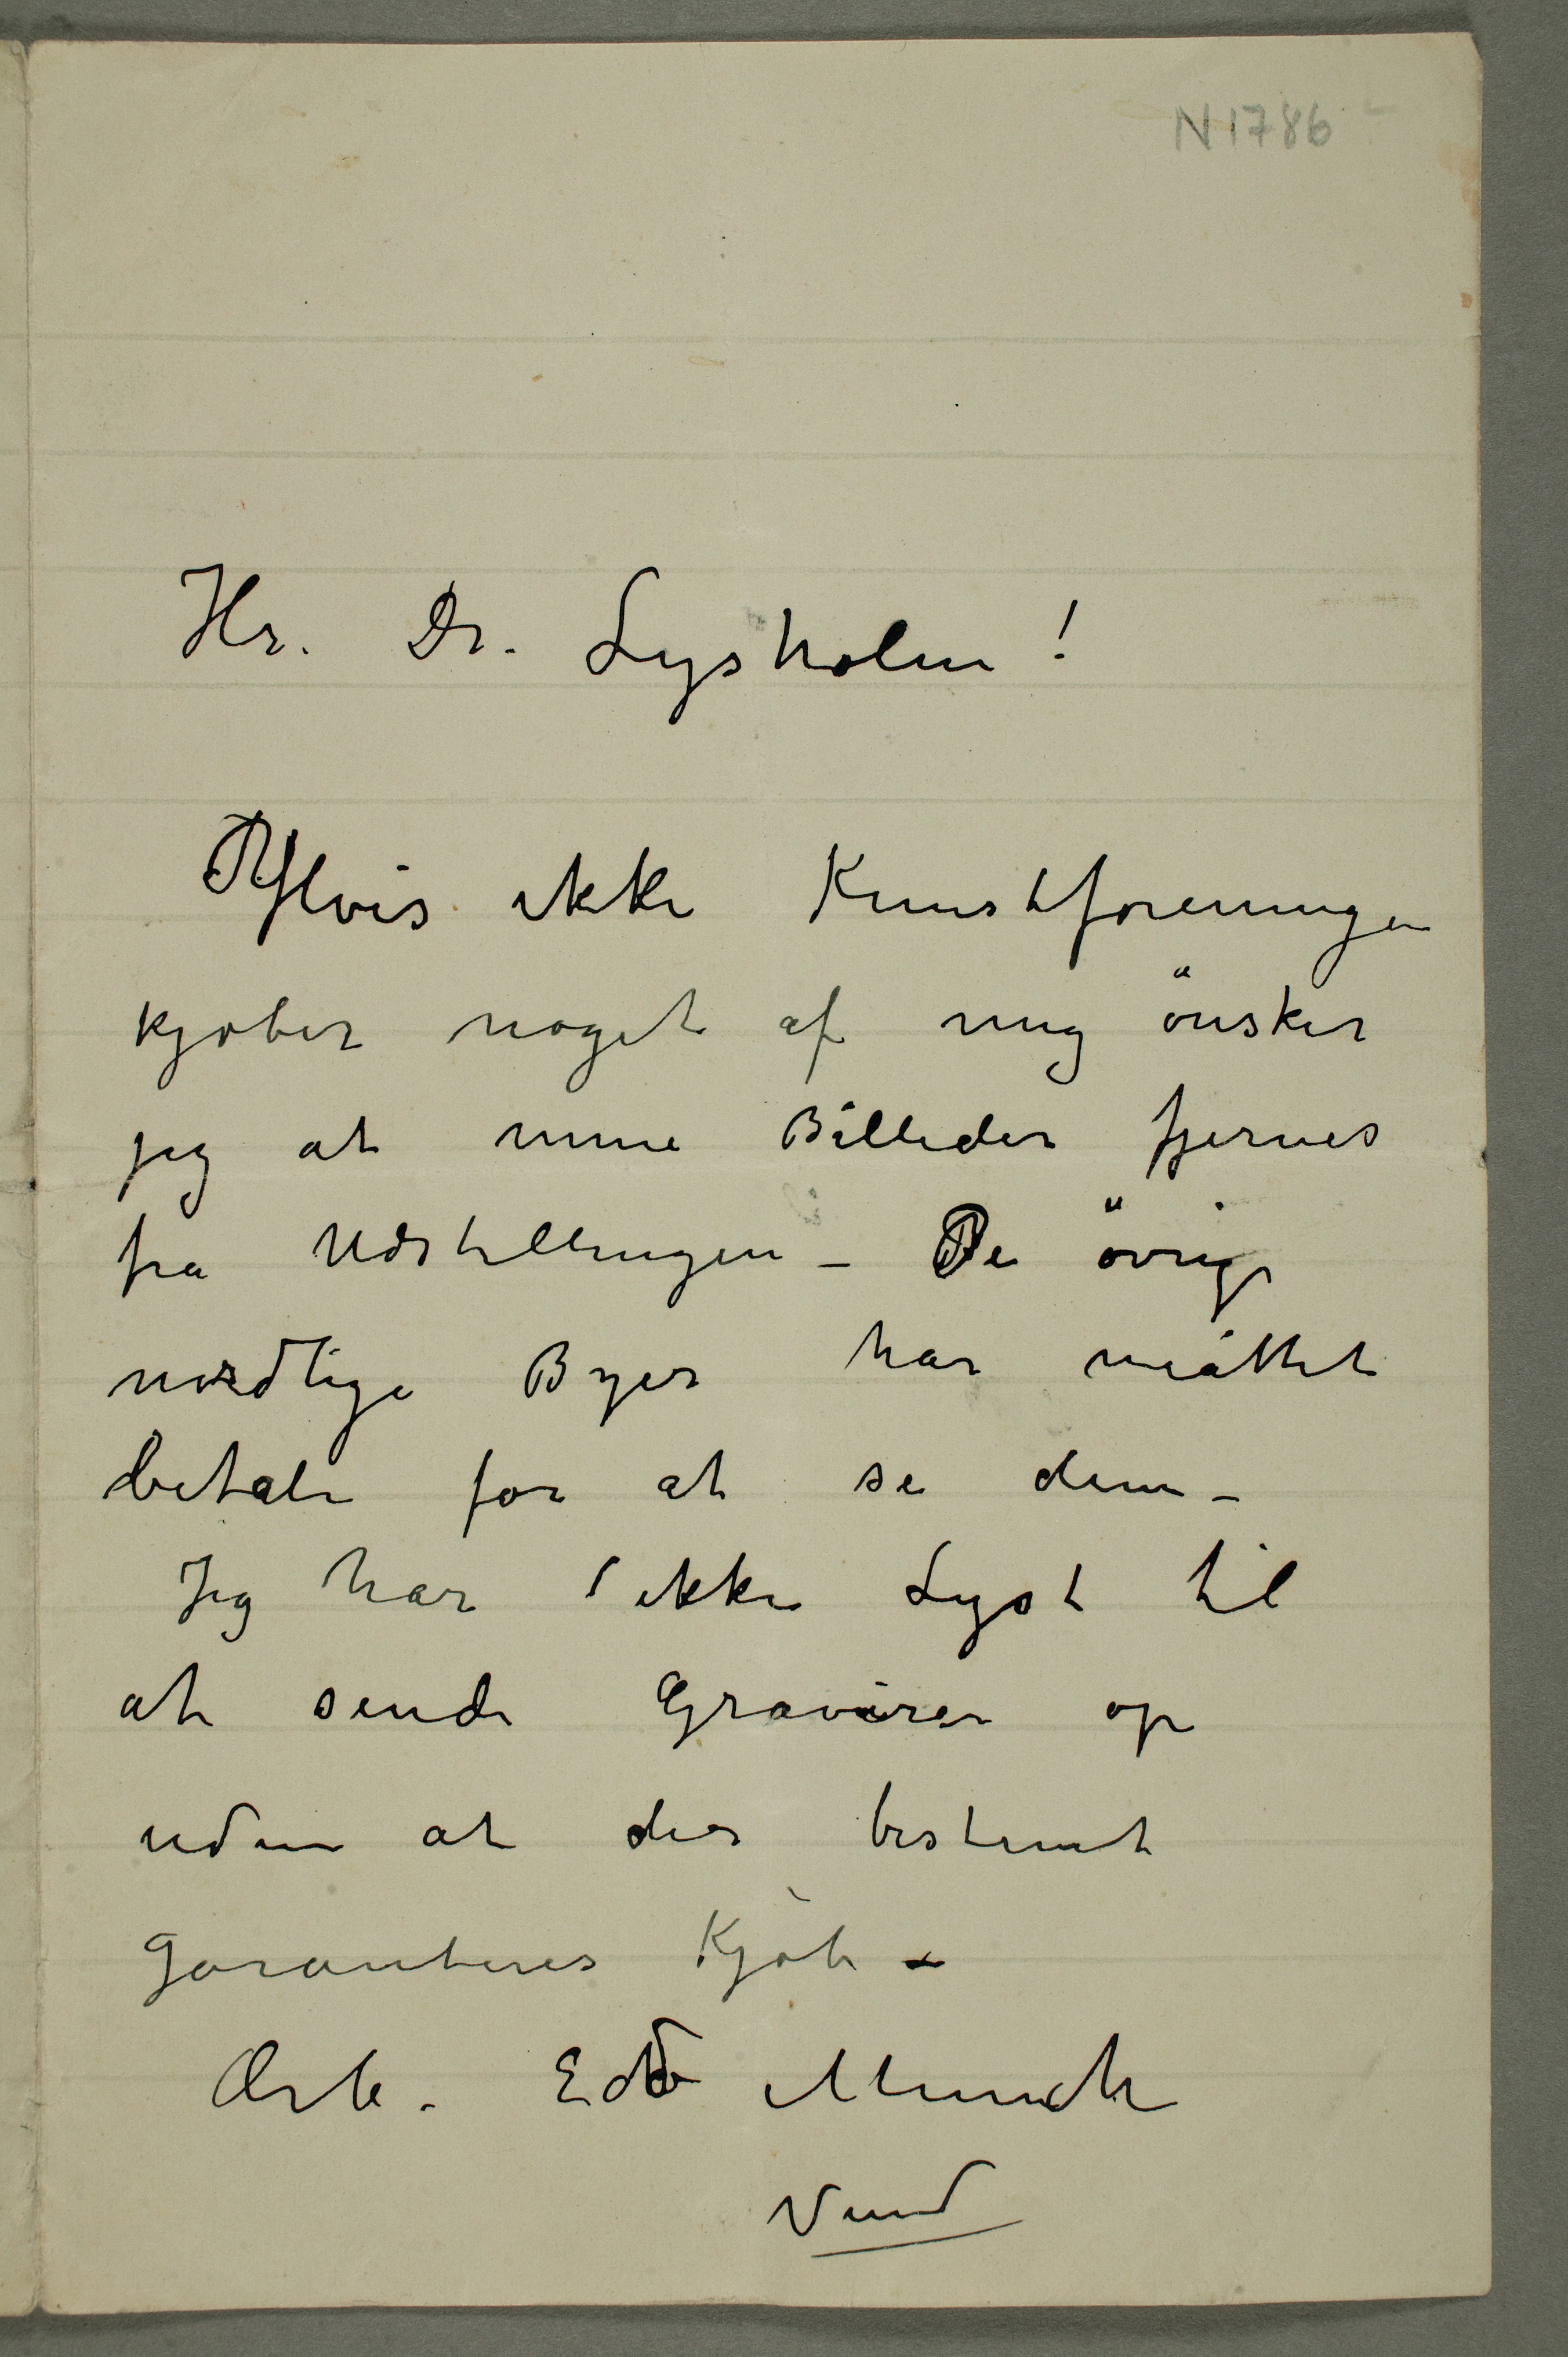 N 1786
Hr. Dr. Lysholm!
Hvis ikke Kunstforeningen
kjøber noget af mig önsker
jeg at mine Billeder fjernes
fra Udstillingen – De övrige
nordlige Byer har måttet
betale for at se dem –
Jeg har ikke Lyst til
at sende Gravürer op
uden at der bestemt
garanteres Kjöb –
Ærb. Edv Munch
Vend